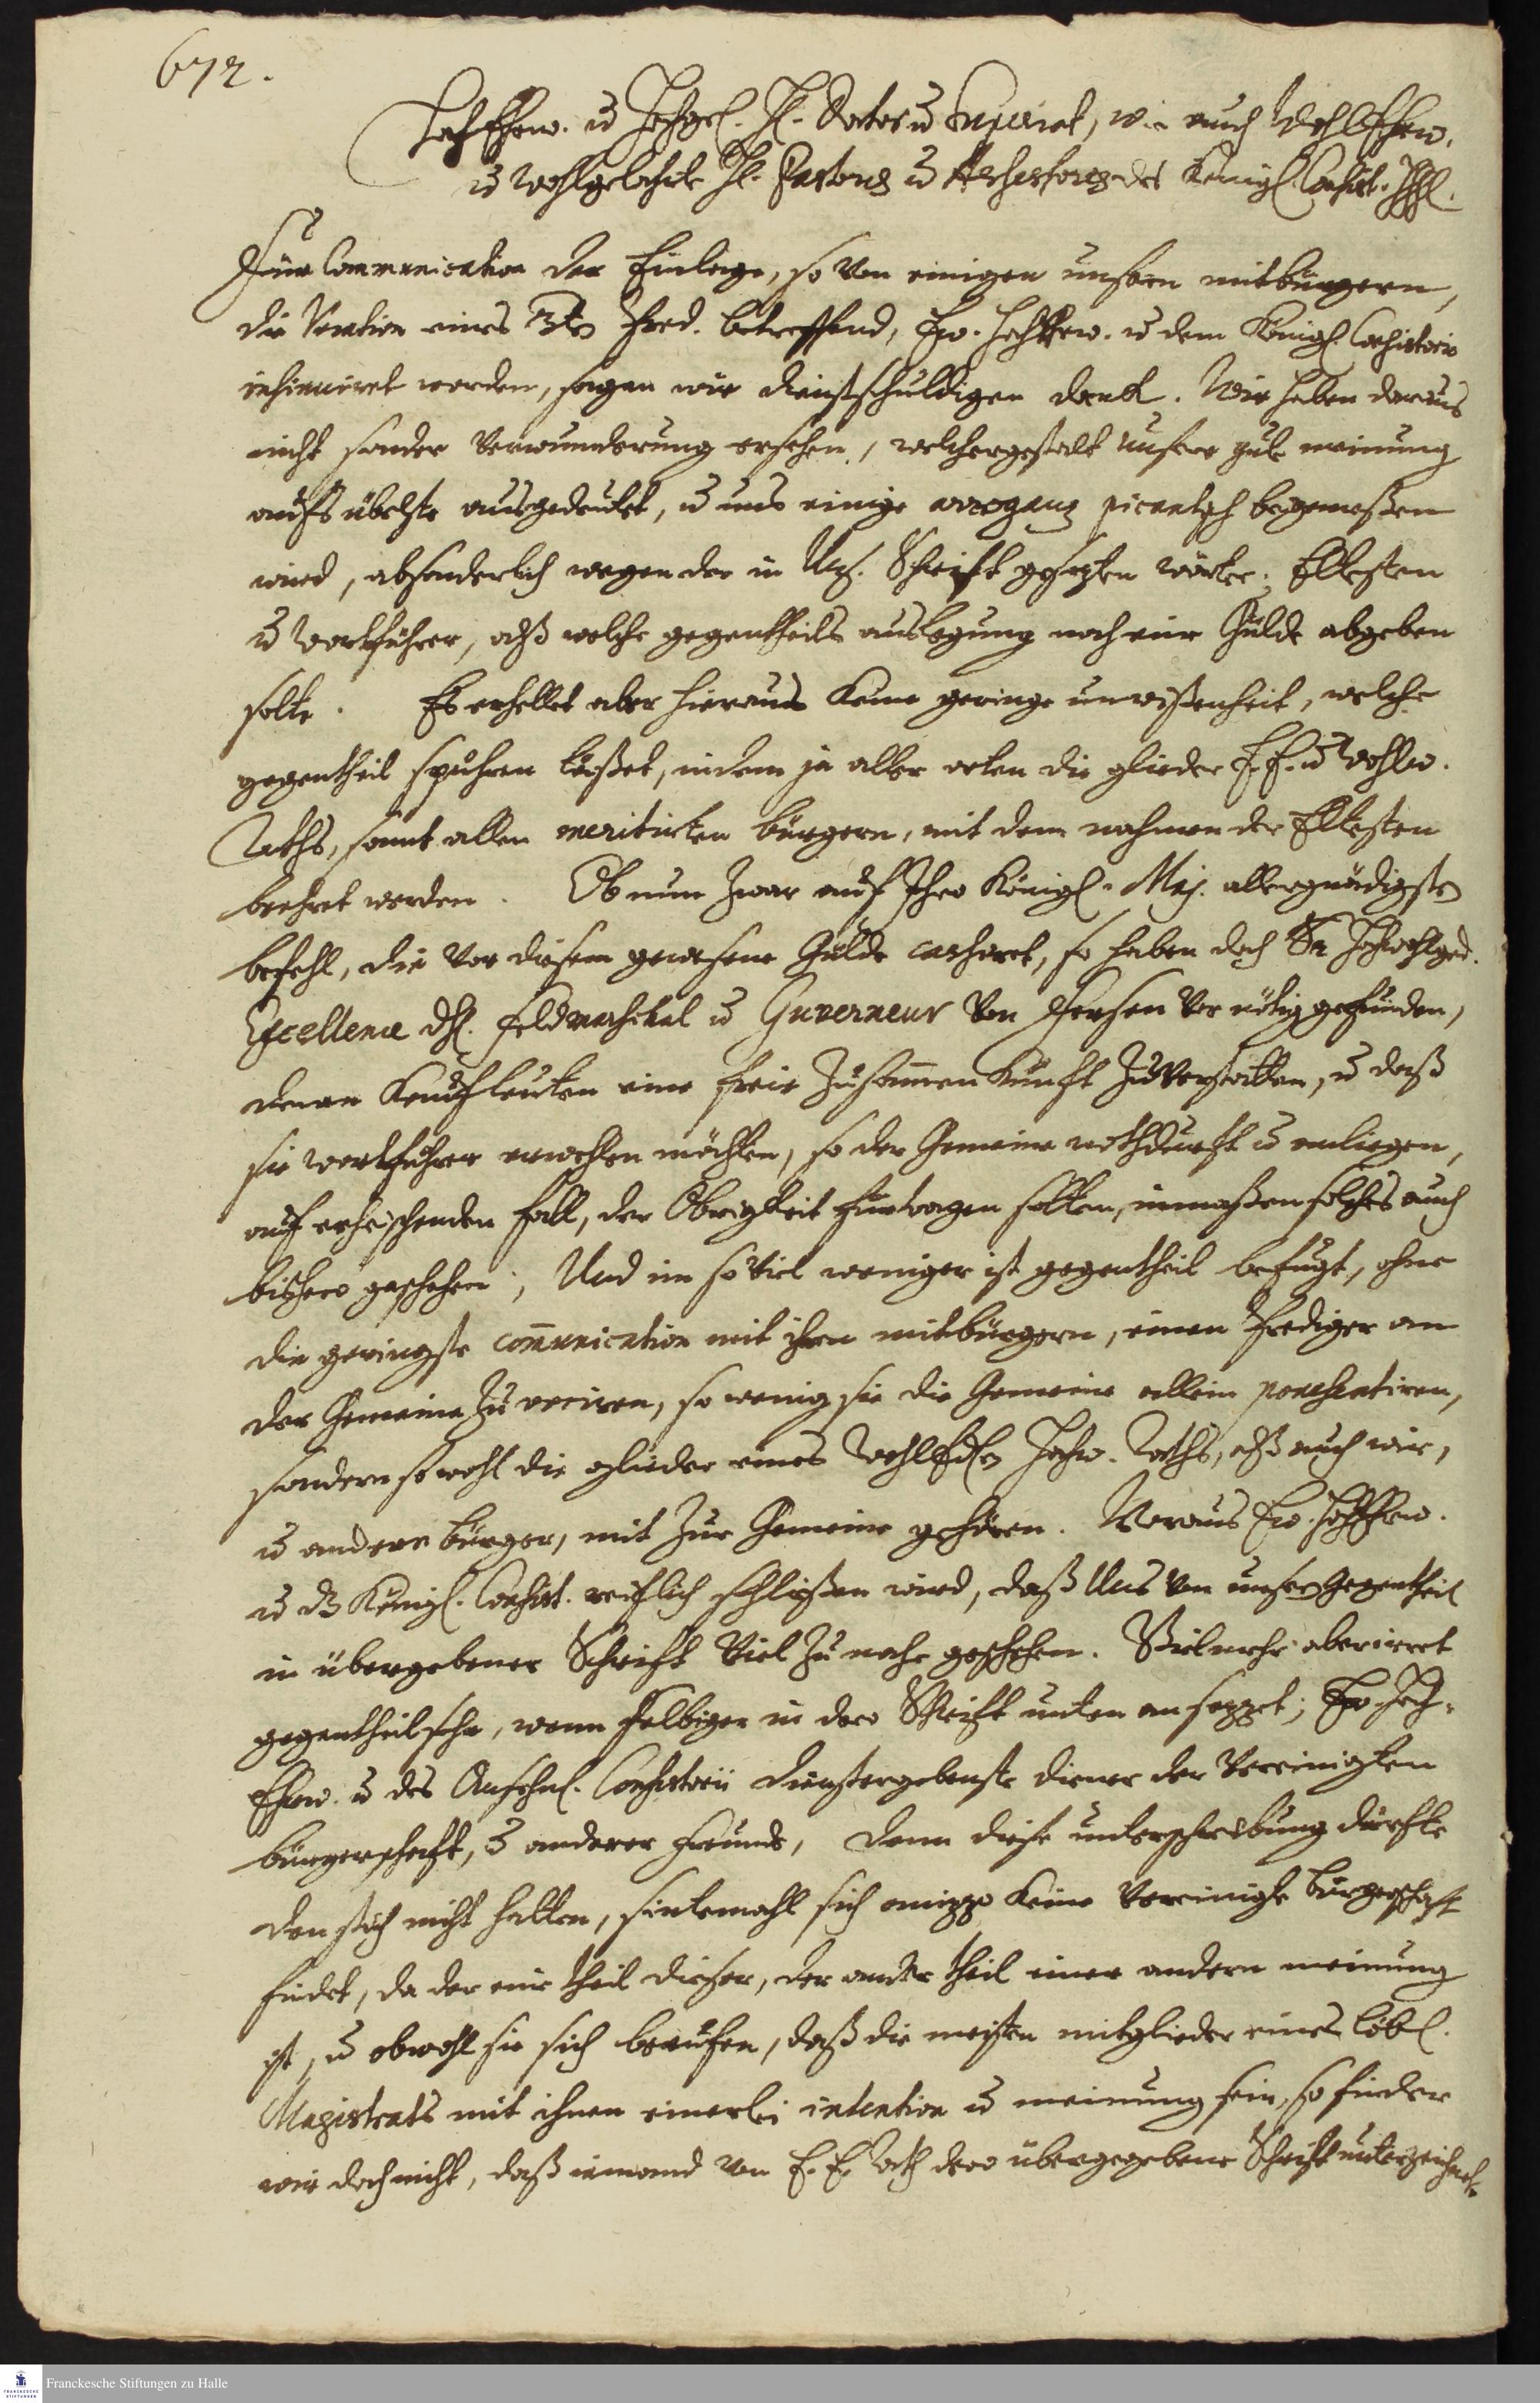 672.
HochEhrw. u Hochgel. H. Doctor u Superint, wie auch WohlEhrw.
u Wohlgelahrte H. Pastores u Assessores des Königl. Consist.
Für Communication der Einlage, so von einigen unsern mitbürgern,
die Vocation eines Pred. betreffend, Ew. HochEhrw. u dem Königl. Consistorio
insinuiret worden, sagen wir dienstschuldigen danck. Wir haben daraus
nicht sonder Verwunderung ersehen, welchergestalt unsere gute meinung
aufs übelste ausgedeutet, u uns einige arroganz picantisch beygemeßen
wird, absonderlich wegen der in Uns. Schrift gesezten wörter: Elltesten
u Wortführer, alß welche gegentheils auslegung nach eine Gülde abgeben
solte. Es erhellet aber hieraus keine geringe unwißenheit, welche
gegentheil spühren läßet, indem ja aller orten die glieder E. E. u Wohlw.
Raths, samt allen meritirten bürgern, mit dem nahmen der Elltesten
beehret werden. Ob nun zwar auf Ihro Königl. Maj. allergnädigsten
befehl, die vor diesem gewesene Gülde cashiret, so haben doch Sr Hochwohlgeb.
Excellence H. Feldmarschal u Guverneur von Fersen vor nötig gefunden,
denen Kaufleuten eine freie Zusam̄enkunft zuverstatten, u daß
sie wortführer erwehlen möchten, so der Gemeine nothdurft u anliegen,
auf erheischenden fall, der Obrigkeit fürtragen solten, inmaßen solches auch
bishero geschehen; Und um so viel weniger ist gegentheil befugt, ohne
die geringste com̄unication mit ihren mitbürgern, einen Prediger an
der Gemeine zu vociren, so wenig sie die Gemeine allein præsentiren,
sondern so wohl die glieder eines WohlEdlen Hochw. Raths, alß auch wir,
u andere bürger, mit zur Gemeine gehören. Woraus Ew. HochEhrw.
u d. Königl. Consist. reiflich schlißen wird, daß Uns von unserm Gegentheil
in übergebener Schrift viel zu nahe geschehen. Vielmehr aberriret
gegentheil sehr, wenn selbiger in dero Schrift unten an sezzet; Ew. Hoch-
Ehrw. u des Ansehnl. Consistorii dienstergebenste diener der Vereinigten
bürgerschaft, u anderer freunde, denn diese unterschreibung dürfte
den stich nicht halten, sintemahl sich anizzo keine Vereinigte bürgerschaft
findet, da der eine theil dieser, der ander theil einer andern meinung
ist, u obwohl sie sich berufen, daß die meisten mitglieder eines Löbl.
Magistrats mit ihnen einerlei intention u meinung sein, so finden
wir doch nicht, daß iemand von E. E. Rath dero übergegebene Schrift unterzeichnet.
Franckesche Stiftungen zu Halle